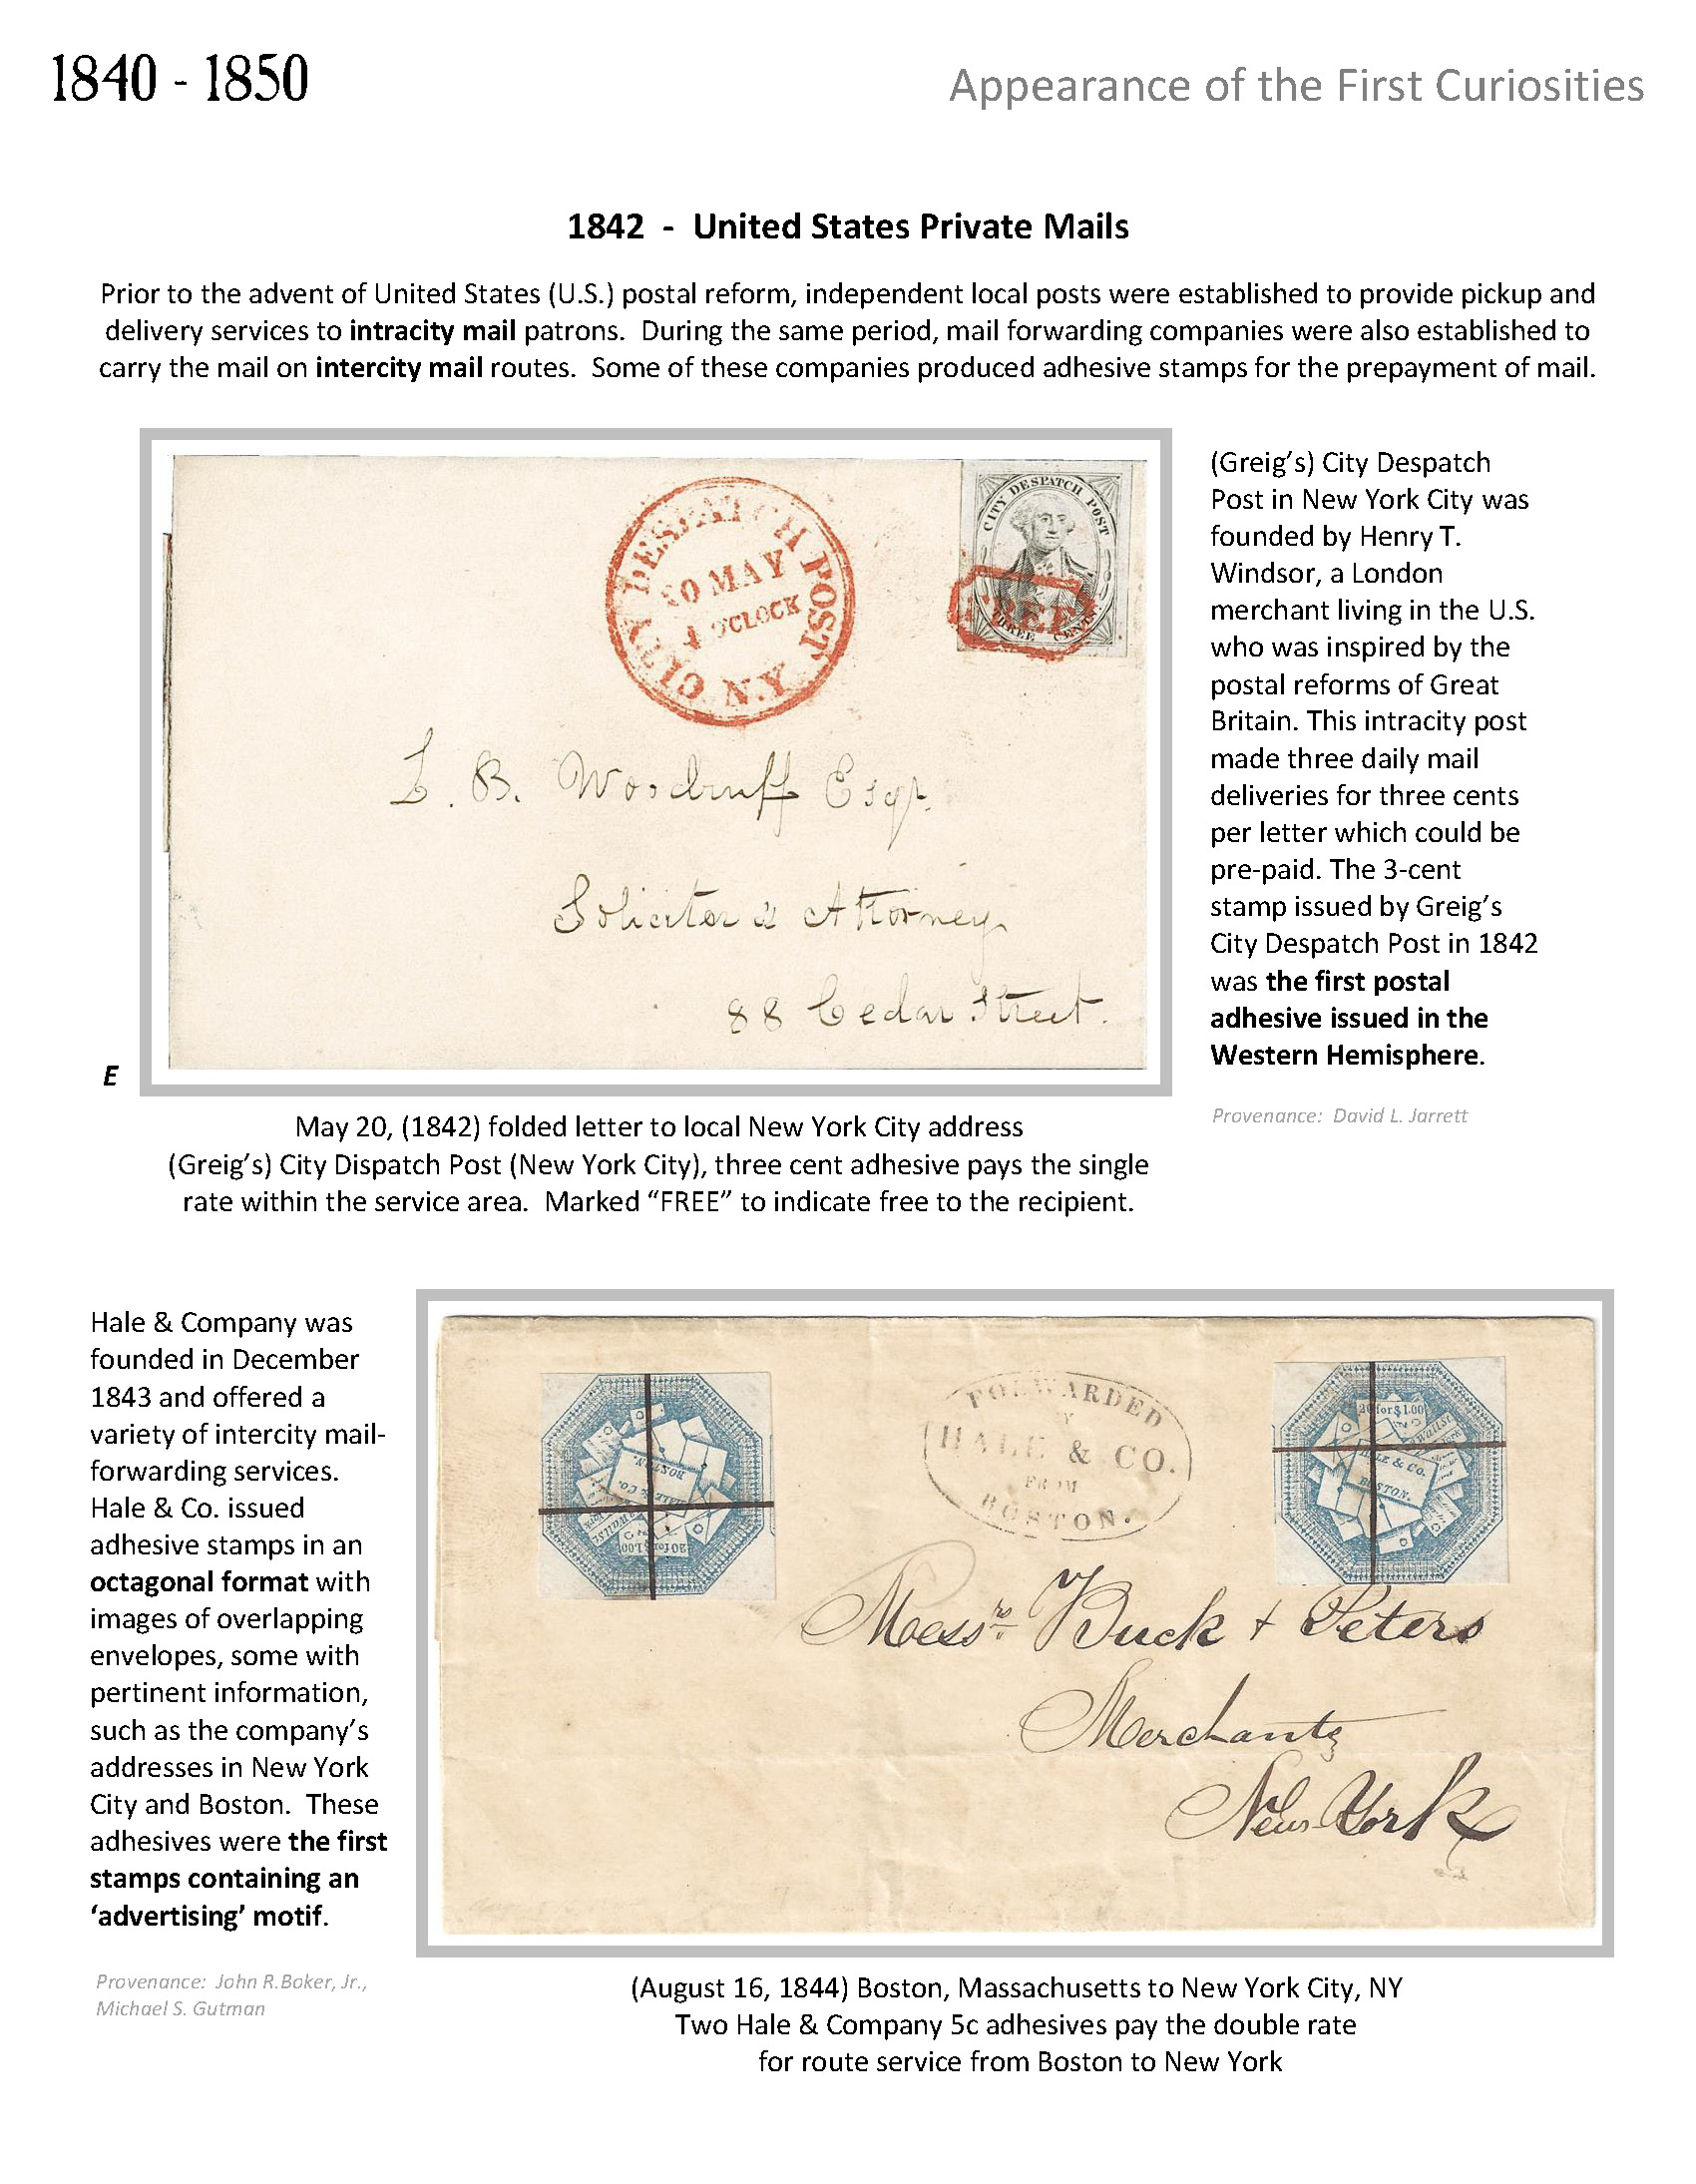 1840 - 1850
Appearance of the First Curiosities
1842 - United States Private Mails
Prior to the advent of United States (U.S.) postal reform, independent local posts were established to provide pickup and
delivery services to intracity mail patrons. During the same period, mail forwarding companies were also established to
carry the mail on intercity mail routes. Some of these companies produced adhesive stamps for the prepayment of mail.
CITY DESPATCH POST
N.Y
20 MAY
4 O'CLOCK
CITY DESPATCH POST
FREE
THREE CENTS
L. B. Woodruff Esqr.
Solicitor & Attorney
88 Cedar Street.
E
(Greig’s) City Despatch
Post in New York City was
founded by Henry T.
Windsor, a London
merchant living in the U.S.
who was inspired by the
postal reforms of Great
Britain. This intracity post
made three daily mail
deliveries for three cents
per letter which could be
pre-paid. The 3-cent
stamp issued by Greig’s
City Despatch Post in 1842
was the first postal
adhesive issued in the
Western Hemisphere.
Provenance: David L. Jarrett
May 20, (1842) folded letter to local New York City address
(Greig’s) City Dispatch Post (New York City), three cent adhesive pays the single
rate within the service area. Marked “FREE” to indicate free to the recipient.
Hale & Company was
founded in December
1843 and offered a
variety of intercity mail-
forwarding services.
Hale & Co. issued
adhesive stamps in an
octagonal format with
images of overlapping
envelopes, some with
pertinent information,
such as the company’s
addresses in New York
City and Boston. These
adhesives were the first
stamps containing an
‘advertising’ motif.
Provenance: John R.Boker, Jr.,
Michael S. Gutman
HALE & Co.
BOSTON.
20 for $1.00
FORWARDED
BY
HALE & CO.
FROM
BOSTON.
20 for $1.00
Wall St.
HALE & Co.
BOSTON.
Messrs Buck + Peters
Merchants
New York
(August 16, 1844) Boston, Massachusetts to New York City, NY
Two Hale & Company 5c adhesives pay the double rate
for route service from Boston to New York